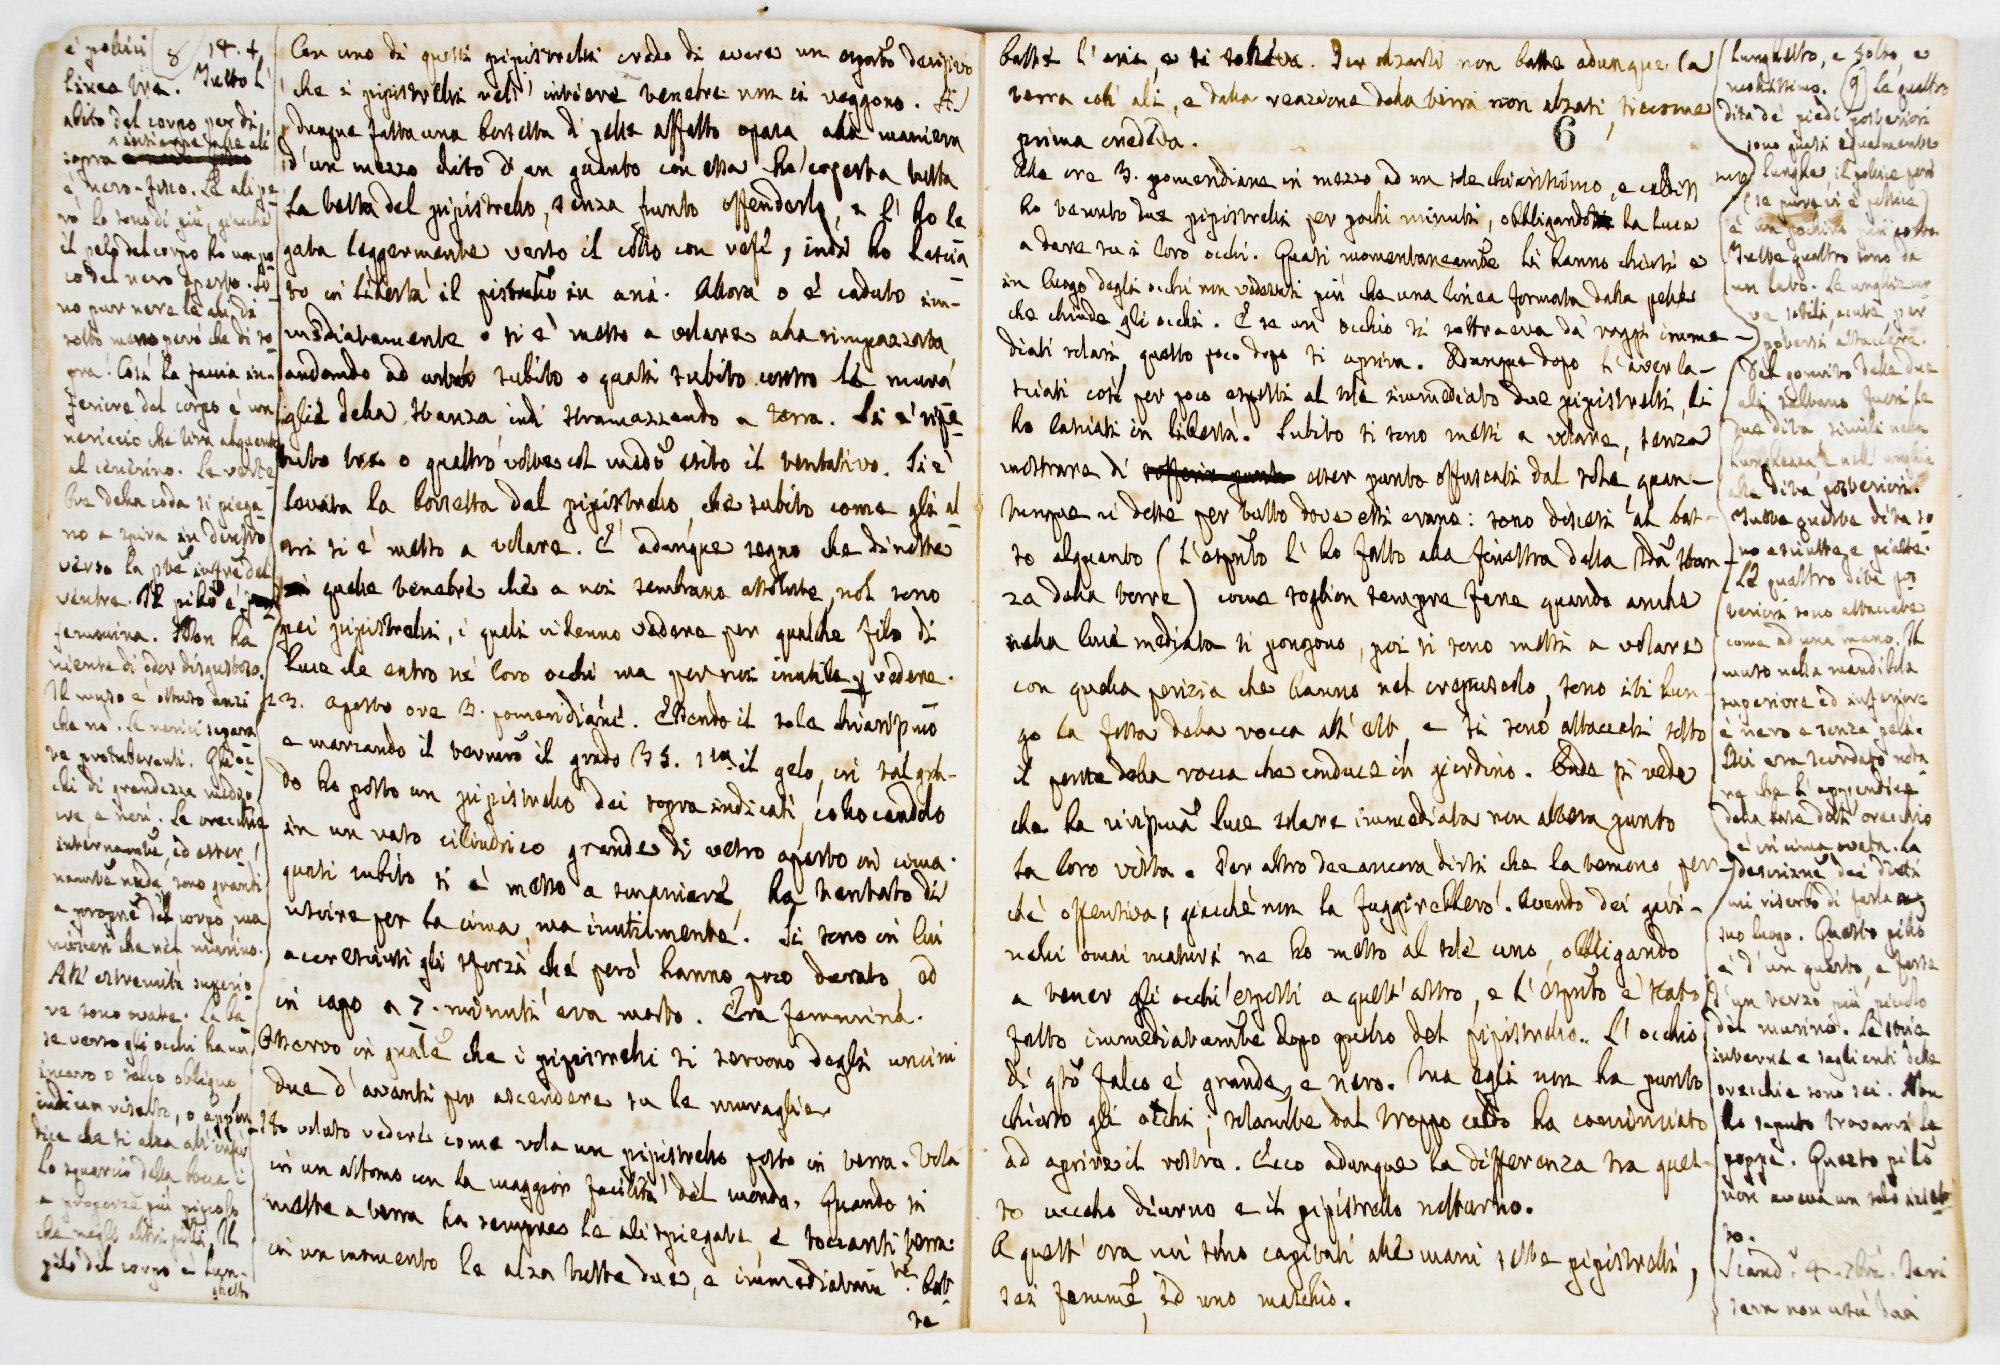 Con uno di questi pipistrelli credo di avere un decisivo
che i pipistrelli nell' intiere tenebre non ci veggono. Si
dunque fatta una borsetta di pelle affatto opaca, alla maniera
d'un mezzo dito d'un guanto con essa ho coperta tutta
la testa del pipistrello, senza punto offenderlo, e l' ho le
gata leggermente verso il collo con refe, indi ho lascia
to in libertà il in aria. Allora o è caduto im-
mediatamente o si è messo a volare alla rimpazzata
andando ad urtar subito o quasi subito contro le mura
glie della stanza indi stramazzando a terra. Si è ripe
tuto tre o quattro volte col esito il tentativo. Si è
levata la borsetta dal pipistrello, che subito come gli al
tri si è messo a volare. È adunque segno che di notte
quelle tenebre che a noi sembrano assolute, nol sono
pei pipistrelli, i quali vedere per qualche filo di
luce che entro ne' loro occhi ma per noi inutile vedere.
23. agosto ore 3. pomeridiane. Essendo il sole
e marcando il il grado 35. il gelo, in tal gra-
do ho posto un pipistrello dei sopra indicati, collocandolo
in un vaso cilindrico grande di vetro aperto in cima.
quasi subito si è messo a smaniare, ha tentato di
uscire per la cima, ma inutilmente. Si sono in lui
accresciuti gli sforzi, che però hanno poco durato, ed
in capo a 7. minuti era morto. Era femmina.
Osservo in che i pipistrelli si servono degli uncini
due d'avanti per ascendere su le muraglie
Ho voluto vedere come vola un pipistrello posto in terra. Vola
in un attimo con la maggior facilità del mondo. Quando si
mette a terra ha sempre le ali spiegate, e toccanti terra:
in un momento le alza tutte due, e bat
te
è (8) 14. +
linee tre. Tutto l'
abito del corpo per di
sopra
è nero-fosco. Le ali pe
rò lo sono di più, giacchè
il pelo del corpo ha un po
co del nero aperto. So
no pur nere le ali di
sotto meno però che di so
pra. Così la faccia in-
feriore del corpo è un
nericcio che tira alquanto
al cenerino. Le verte
bre della coda si piega
no a spira in dentro
verso la del
ventre. Il è
femmina. Non ha
niente di odor disgustoso.
Il muso è ottuso anzi
che no. Le narici separa
te protuberanti. Gli oc
chi di grandezza medio
cre, e neri. Le orecchie
ed ester
nude, sono grandi
a del corpo, ma
minori che nel murino.
All' estremità superio
re sono ovate. La ba
se verso gli occhi ha un
incavo o solco obliquo
indi un risalto, o appen
dice che si alza all' insù
Lo squarcio della bocca è
a più piccolo
che negli altri. Il
pelo del corpo è lun-
ghetto
batte l' aria, e si solleva. Per alzarsi non batte adunque la
terra coll' ali, e dalla reazione della terra non alzasi, siccome
prima credeva.
6
Alle ore 3. pomeridiane in mezzo ad un sole chiarissimo, e
ho tenuto due pipistrelli per pochi minuti, obbligando la luce
a dare su i loro occhi. Quasi li hanno chiusi e
in luogo degli occhi non vedevasi più che una linea formata dalla pelle
che chiude gli occhi. E se un occhio si sottraeva da' raggi imme-
diati solari, questo poco dopo si apriva. Adunque dopo d'aver la-
sciati così per poco esposti al sole immediato due pipistrelli, li
ho lasciati in libertà. Subito si sono messi a volare, senza
mostrare di esser punto offuscati dal sole, quan-
tunque vi desse per tutto dove essi erano: sono discesi al bas-
so alquanto (l' ho fatto alla finestra della stan
za della torre) come soglion sempre fare quando anche
nella luce mediata si pongono, poi si sono messi a volare
con quella perizia che hanno nel crepuscolo, sono iti lun-
go la fossa della rocca all' est, e si sono attaccati sotto
il ponte della rocca che conduce in giardino. Onde si vede
che la luce solare immediata non altera punto
la loro vista. Per altro dee ancora dirsi che la temono per
chè offensiva, giacchè non la fuggirebbero. Avendo dei
omai maturi ne ho messo al sole uno, obbligando
a tener gli occhi esposti a quell' astro, e l' è stato
fatto dopo quello del pipistrello. L' occhio
di falco è grande, e nero. Ma egli non ha punto
chiuso gli occhi; dal troppo caldo ha cominciato
ad aprire il rostro. Ecco adunque la differenza tra ques-
to uccello diurno e il pipistrello notturno.
A quest' ora mi sono capitati alle mani sette pipistrelli,
sei femme, ed uno maschio.
lunghetto, e folto, e
mollissimo. (9) Le quattro
dita de' piedi posteriori
sono quasi egualmente
lunghe, il pollice però
(se pure vi è pollice)
è un pochino più corto.
Tutte quattro sono da
un lato. Le unghie
sottili, acute per
potersi attaccare.
Dal gomito delle due
ali saltano fuori le
due dita simili nella
lunghezza e nell' unghia
alle dita posteriori.
Tutte queste dita so
no asciutte, e piatte.
Le quattro dita pos
teriori sono attaccate
come ad una mano. Il
muso nella mandibola
superiore ed inferiore
è nero e senza peli.
Mi era scordato nota
re che l' appendice
della base dell' orecchio
è in cima ovata. La
dei denti
mi riserbo di farla a
suo luogo. Questo
è d'un quarto, e forse
d'un terzo più piccolo
del murino. Le strie
interne e saglienti delle
orecchie sono sei. Non
ho saputo trovarvi le
poppe. Questo
non aveva un solo
to.
4. Ieri
sera non